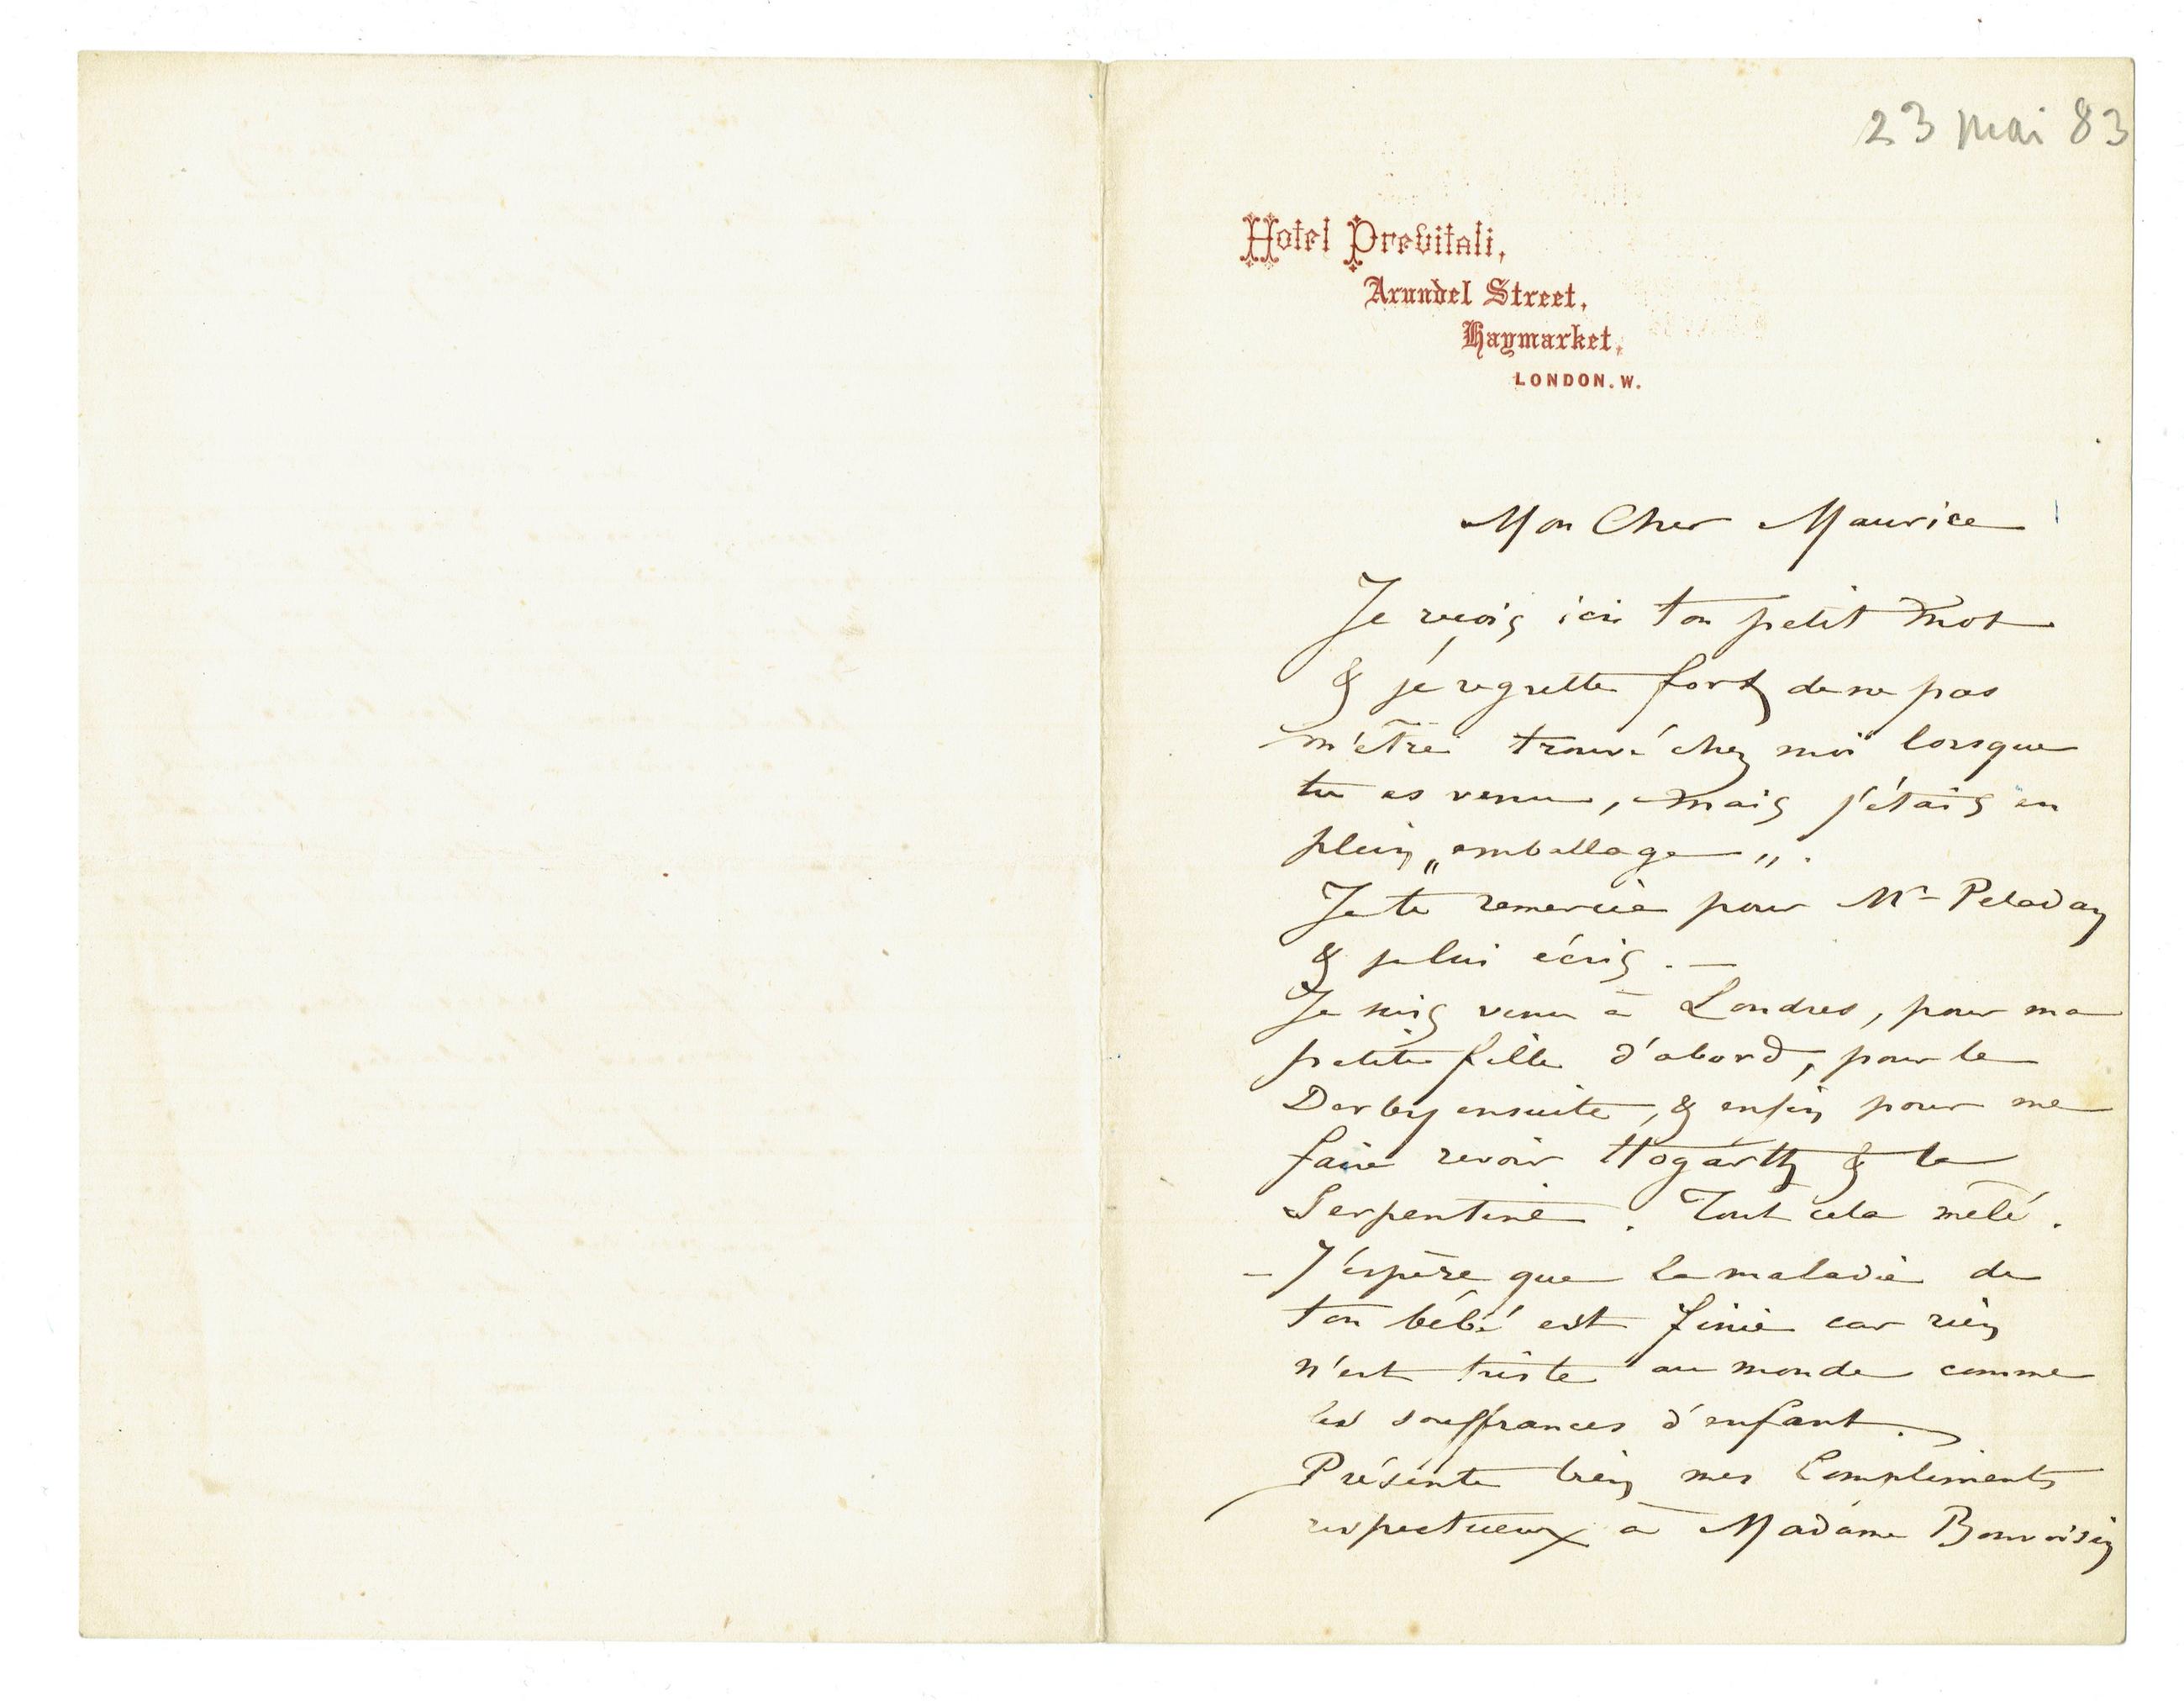 23 mai 83
Hotel Previtali,
Arundel Street,
Haymarket,
LONDON. W.
Mon Cher Maurice
Je reçois ici ton petit mot
& je regrette fort de ne pas
m'être trouvé chez moi lorsque
tu es venu, mais j'étais en
plein „emballage„.
Je te remercie pour Mr Peladan
& je lui écris. —
Je suis venu à Londres, pour ma
petite fille d'abord, pour le
Derby ensuite, & enfin pour me
faire revoir Hogarth & la
Serpentine. Tout cela mêlé.
– J'espère que la maladie de
ton bébé est finie car rien
n'est triste au monde comme
les souffrances d'enfant.
Présente bien mes Compliments
respectueux à Madame Bonvoisin